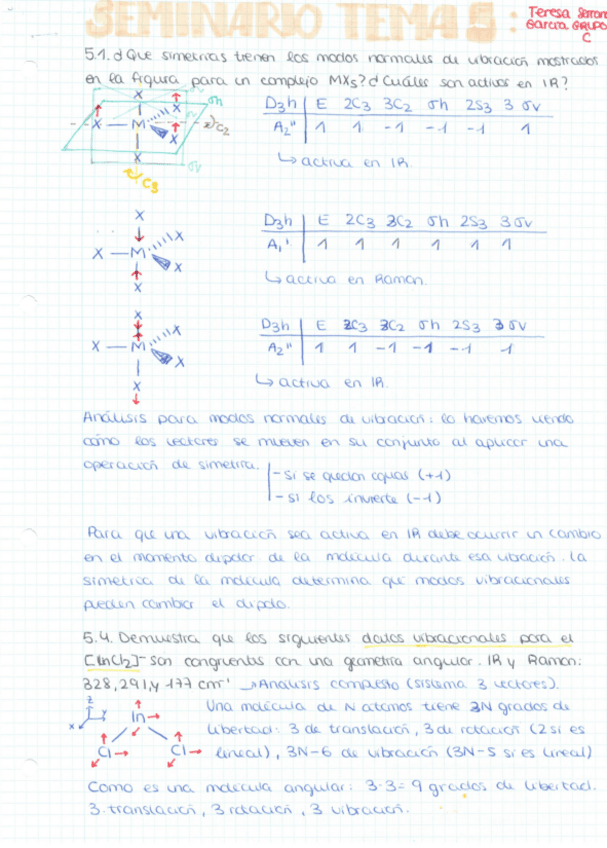 SEMINARIO TEMA 5:
Teresa Serrano
García GRUPO
C
5.1. ¿Que simetrías tienen los modos normales de vibración mostrados
en la figura para un complejo MX5? ¿Cuáles son activos en IR?
X
σh
X — M X
X
C2
X
σv
C3
D3h | E 2C3 3C2 σh 2S3 3σv
A2" | 1 1 -1 -1 -1 1
↳ activa en IR.
X
X — M X
X
X
D3h | E 2C3 3C2 σh 2S3 3σv
A1' | 1 1 1 1 1 1
↳ activa en Raman.
X
X — M X
X
X
D3h | E 2C3 3C2 σh 2S3 3σv
A2" | 1 1 -1 -1 -1 1
↳ activa en IR.
Análisis para modos normales de vibración: lo haremos viendo
cómo los vectores se mueven en su conjunto al aplicar una
operación de simetría.
- si se quedan iguas (+1)
- si los invierte (-1)
Para que una vibración sea activa en IR debe ocurrir un cambio
en el momento dipolar de la molécula durante esa vibración. La
simetría de la molécula determina qué modos vibracionales
pueden cambiar el dipolo.
5.4. Demuestra que los siguientes datos vibracionales para el
[InCl2]- son congruentes con una geometría angular. IR y Raman:
328, 291, y 177 cm⁻¹ → Análisis completo (sistema 3 vectores).
z
y
x
In
Cl Cl
Una molécula de N átomos tiene 3N grados de
libertad: 3 de translación, 3 de rotación (2 si es
lineal), 3N-6 de vibración (3N-5 si es lineal)
Como es una molécula angular: 3·3 = 9 grados de libertad.
3 translación, 3 rotación, 3 vibración.